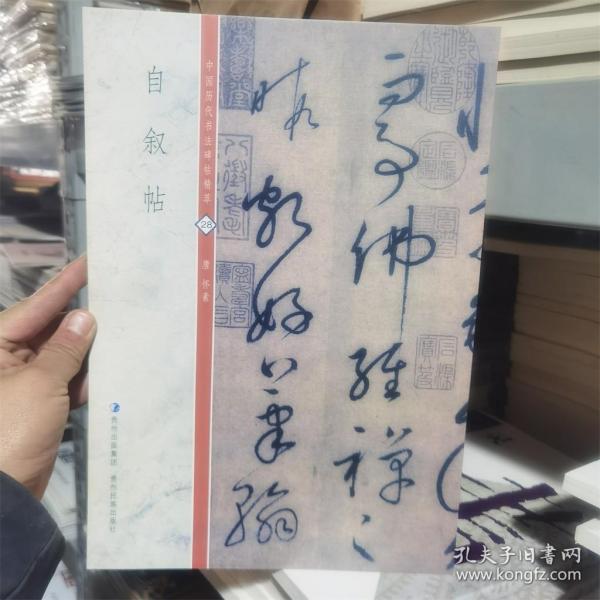 自叙帖
中国历代书法碑帖精萃
28
唐 怀素
贵州出版集团 贵州民族出版社
事佛经禅之
暇颇好笔翰
孔夫子旧书网
www.kongfz.com